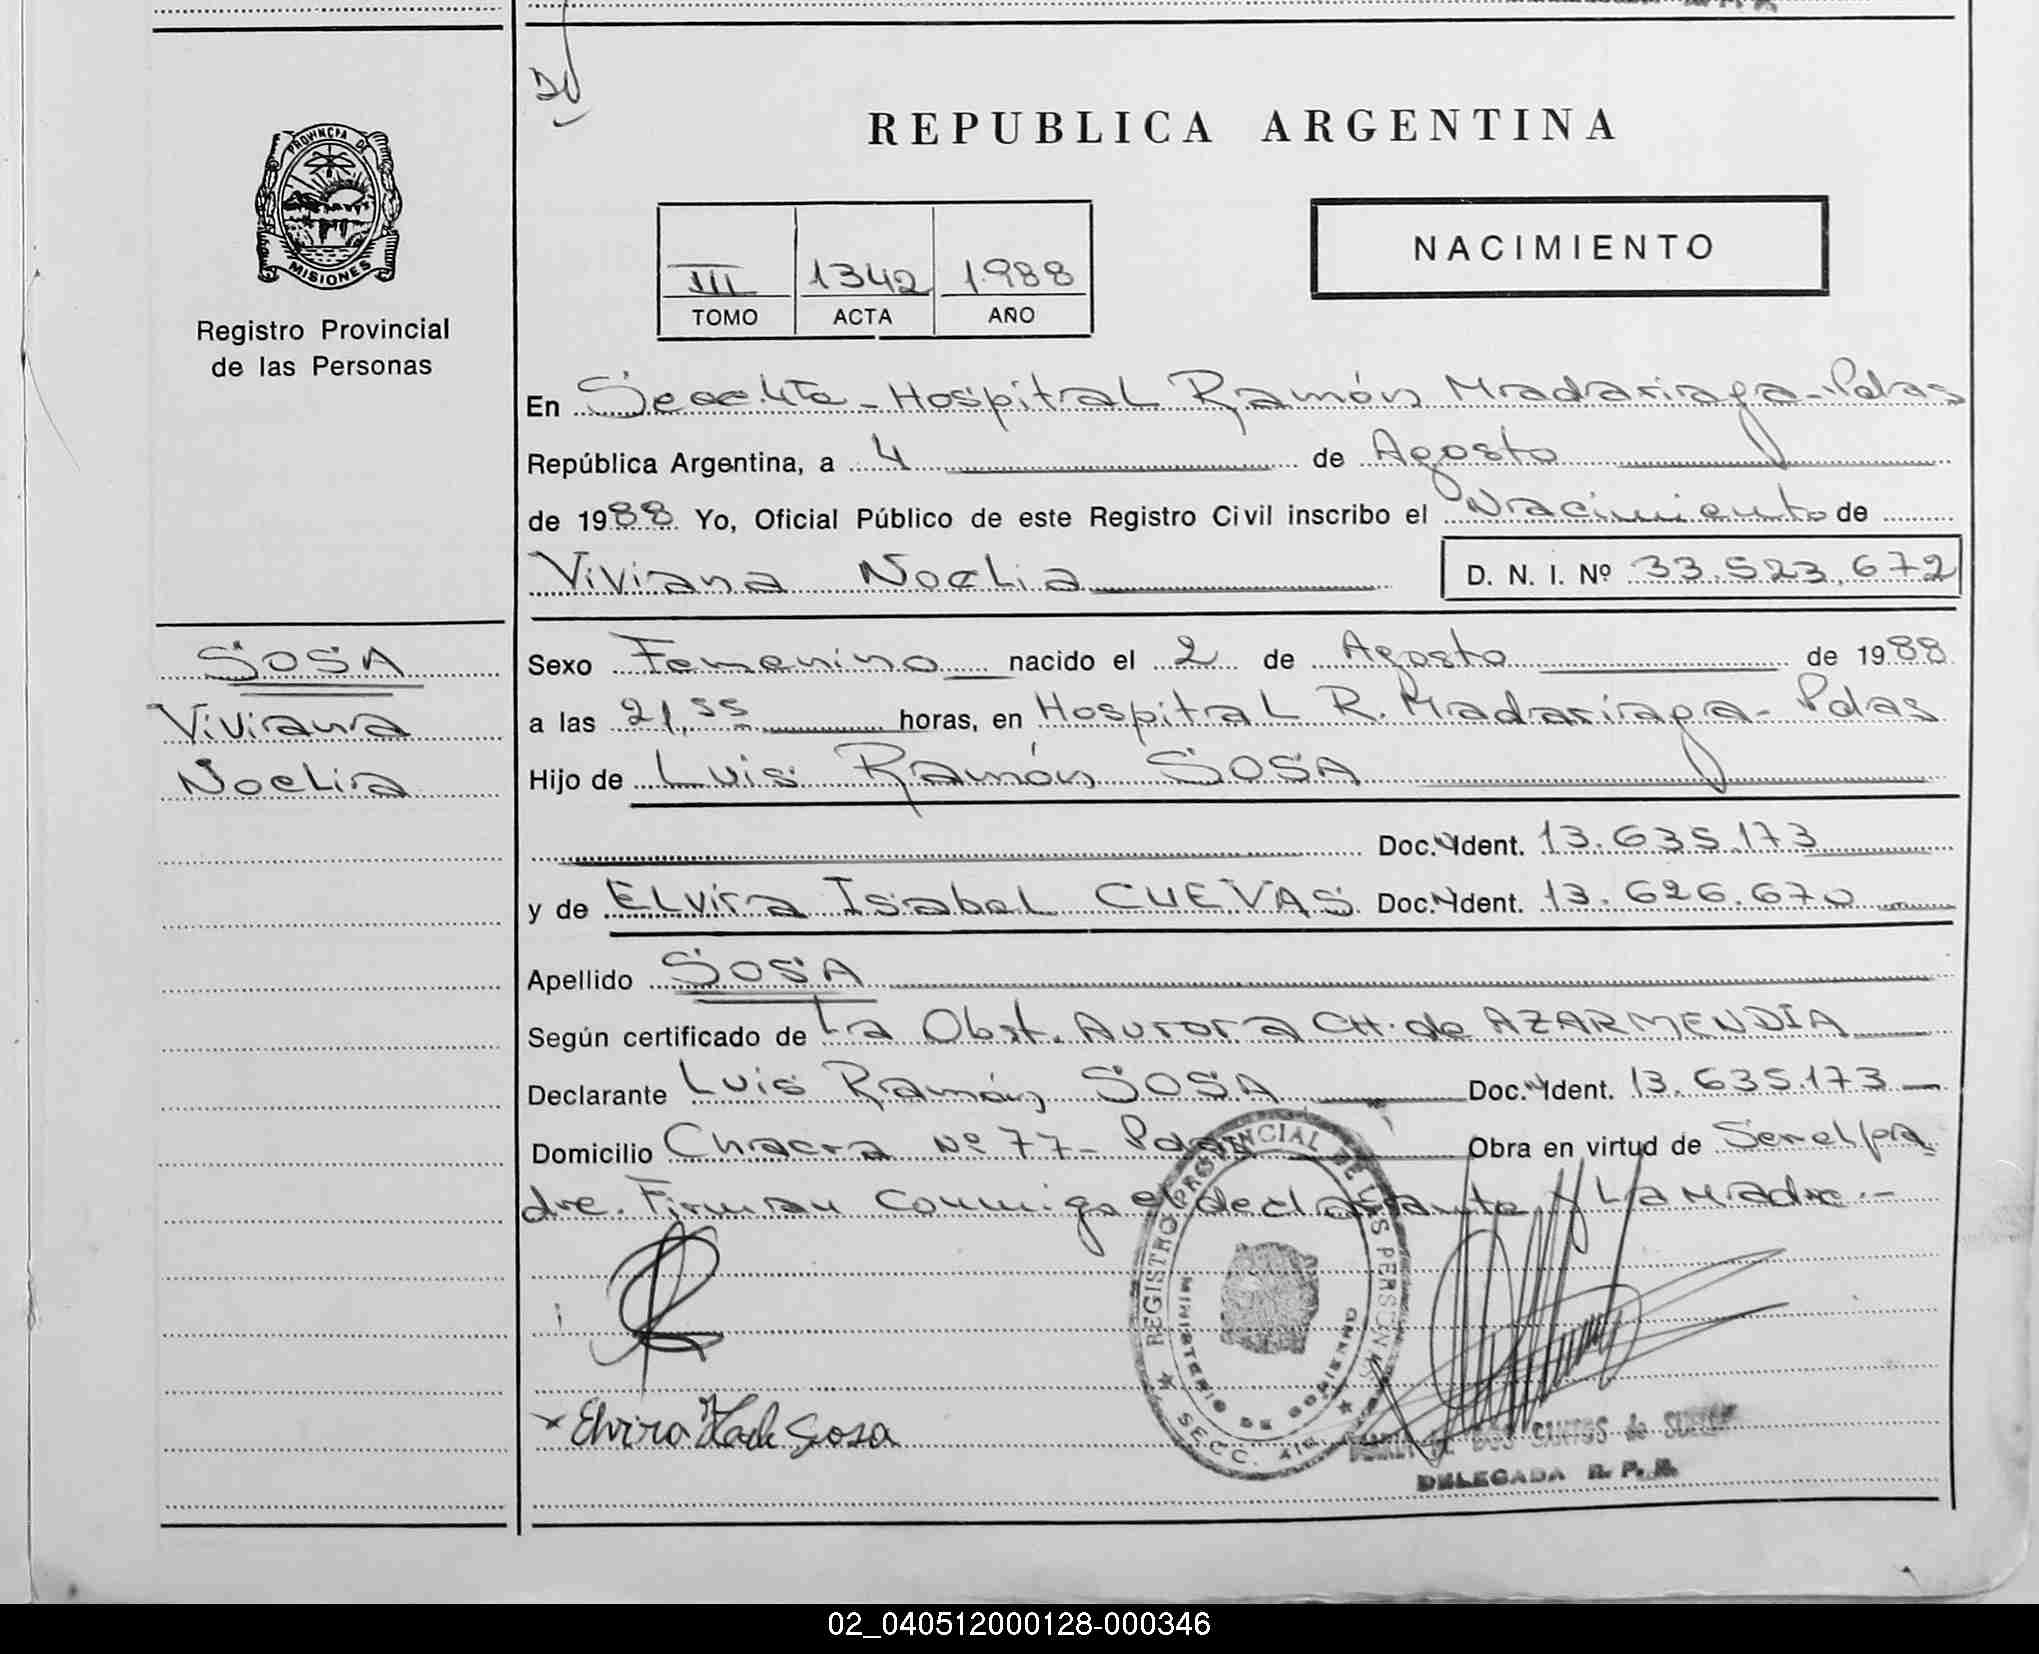 REPUBLICA ARGENTINA
PROVINCIA DE
MISIONES
Registro Provincial
de las Personas
III 1342 1.988
TOMO ACTA AÑO
NACIMIENTO
En Secc. 4ta - Hospital Ramón Madariaga - Pdas
República Argentina, a 4 de Agosto
de 1988 Yo, Oficial Público de este Registro Civil inscribo el Nacimiento de
Viviana Noelia D. N. I. Nº 33.523.672
SOSA
Viviana
Noelia
Sexo Femenino nacido el 2 de Agosto de 1988
a las 21,55 horas, en Hospital R. Madariaga - Pdas
Hijo de Luis Ramón SOSA
Doc. Ident. 13.635.173
y de Elvira Isabel CUEVAS Doc. Ident. 13.626.670
Apellido SOSA
Según certificado de La Obst. Aurora CH. de AZARMENDIA
Declarante Luis Ramón SOSA Doc. Ident. 13.635.173
Domicilio Chacra Nº 77 - Pdas Obra en virtud de Ser el pa
dre. Firman conmigo el declarante y La Madre.-
REGISTRO PROVINCIAL DE LAS PERSONAS
MINISTERIO DE GOBIERNO
SECC.
Elvira de Sosa
DOS SANTOS de
DELEGADA R. P. P.
02_040512000128-000346